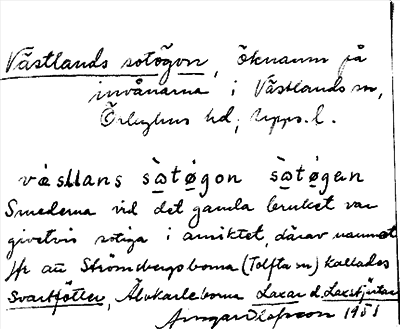 Västlands sotögon, öknamn på
invånarna i Västlands sn,
Örbyhus hd, Upps. l.
västlans sòtøgon sòtøgan
Smederna vid det gamla bruket var
givetvis sotiga i ansiktet, därav namnet
Jfr att Strömsbergsborna (Tolfta sn) kallades
Svartfötter, Älvkarleborna Laxar l. Laxstjärtar
Olofsson 1951